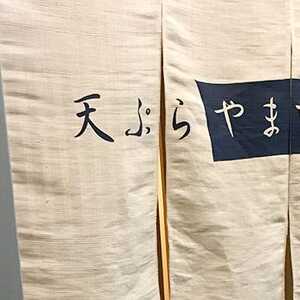 天ぷらやま